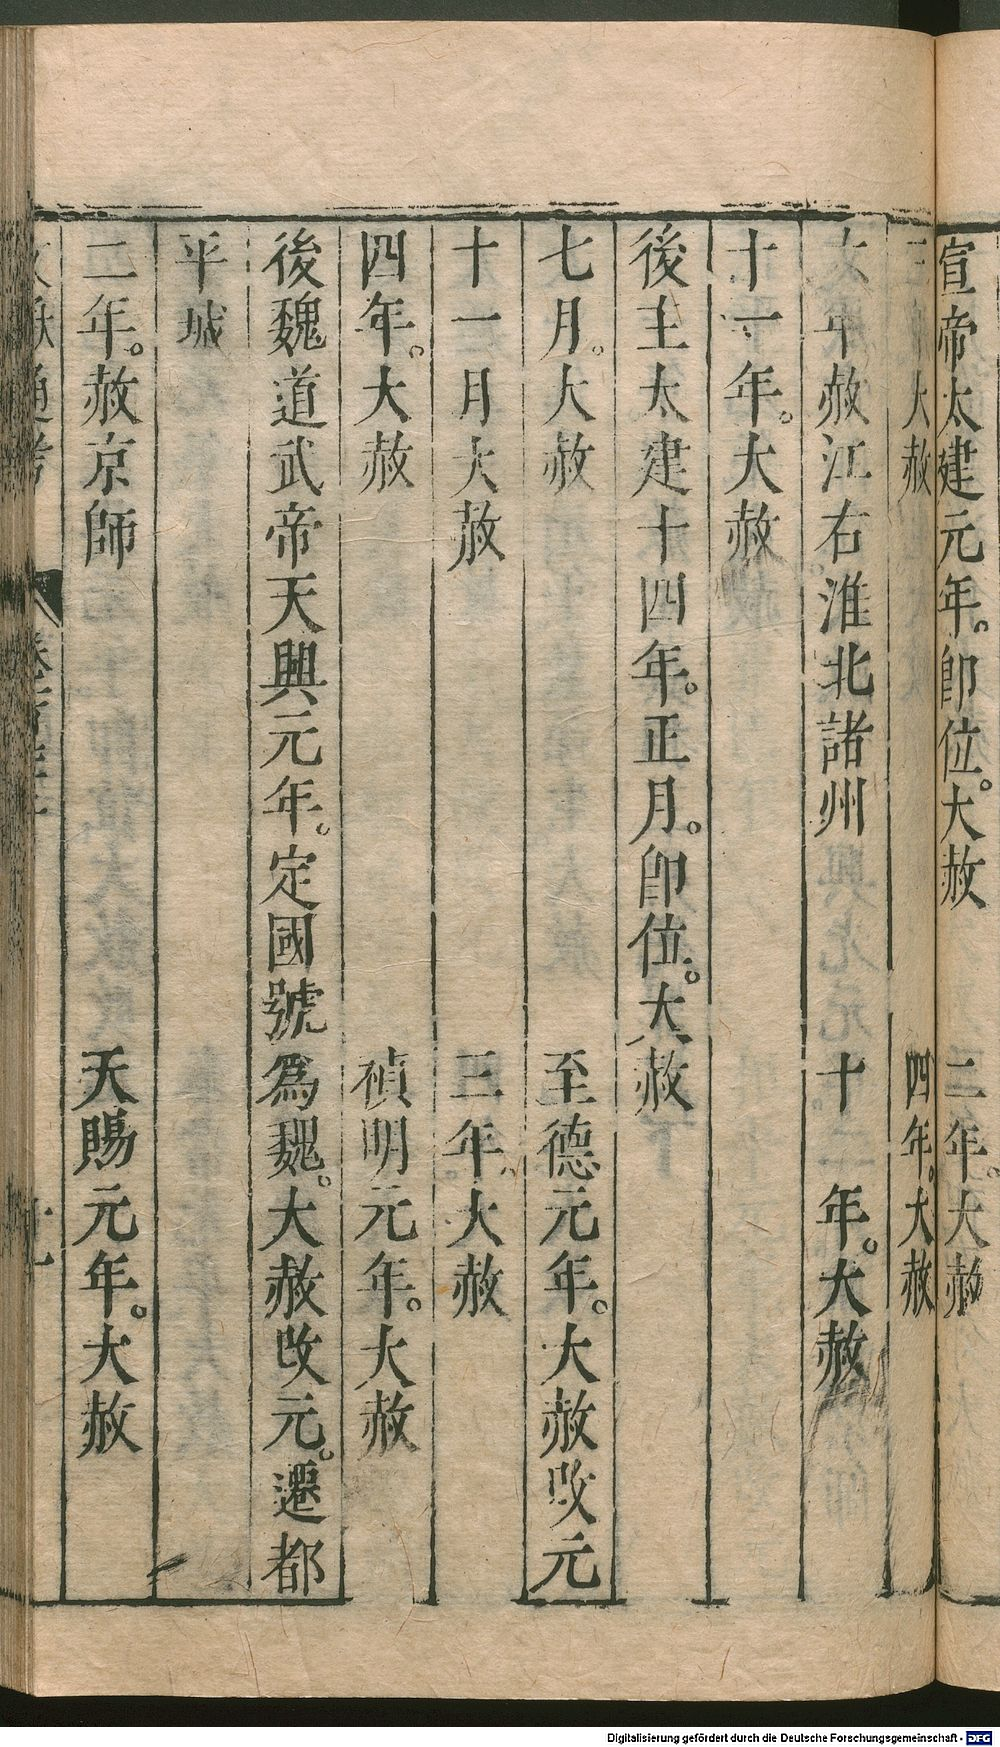 宣帝太建元年。卽位。大赦　二年。大赦
三　大赦　四年。大赦
六年赦江右淮北諸州　十　年。大赦
十一年。大赦
後主太建十四年。正月。卽位。大赦
七月。大赦　至德元年。大赦改元
十一月大赦　三年。大赦
四年。大赦　禎明元年。大赦
後魏道武帝天興元年。定國號爲魏。大赦改元。遷都
平城
二年。赦京師　天賜元年。大赦
文獻通考
Digitalisierung gefördert durch die Deutsche Forschungsgemeinschaft - DFG